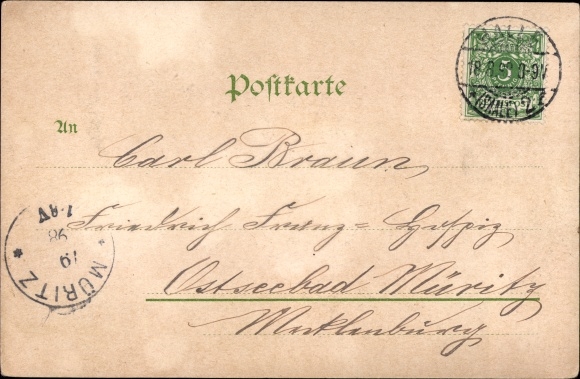 HALLE
(SAALE) 2
5
Postkarte
An
Carl Braun,
Friedrich Franz-Hospiz
Ostseebad Müritz
Mecklenburg
* MÜRITZ *
19
98